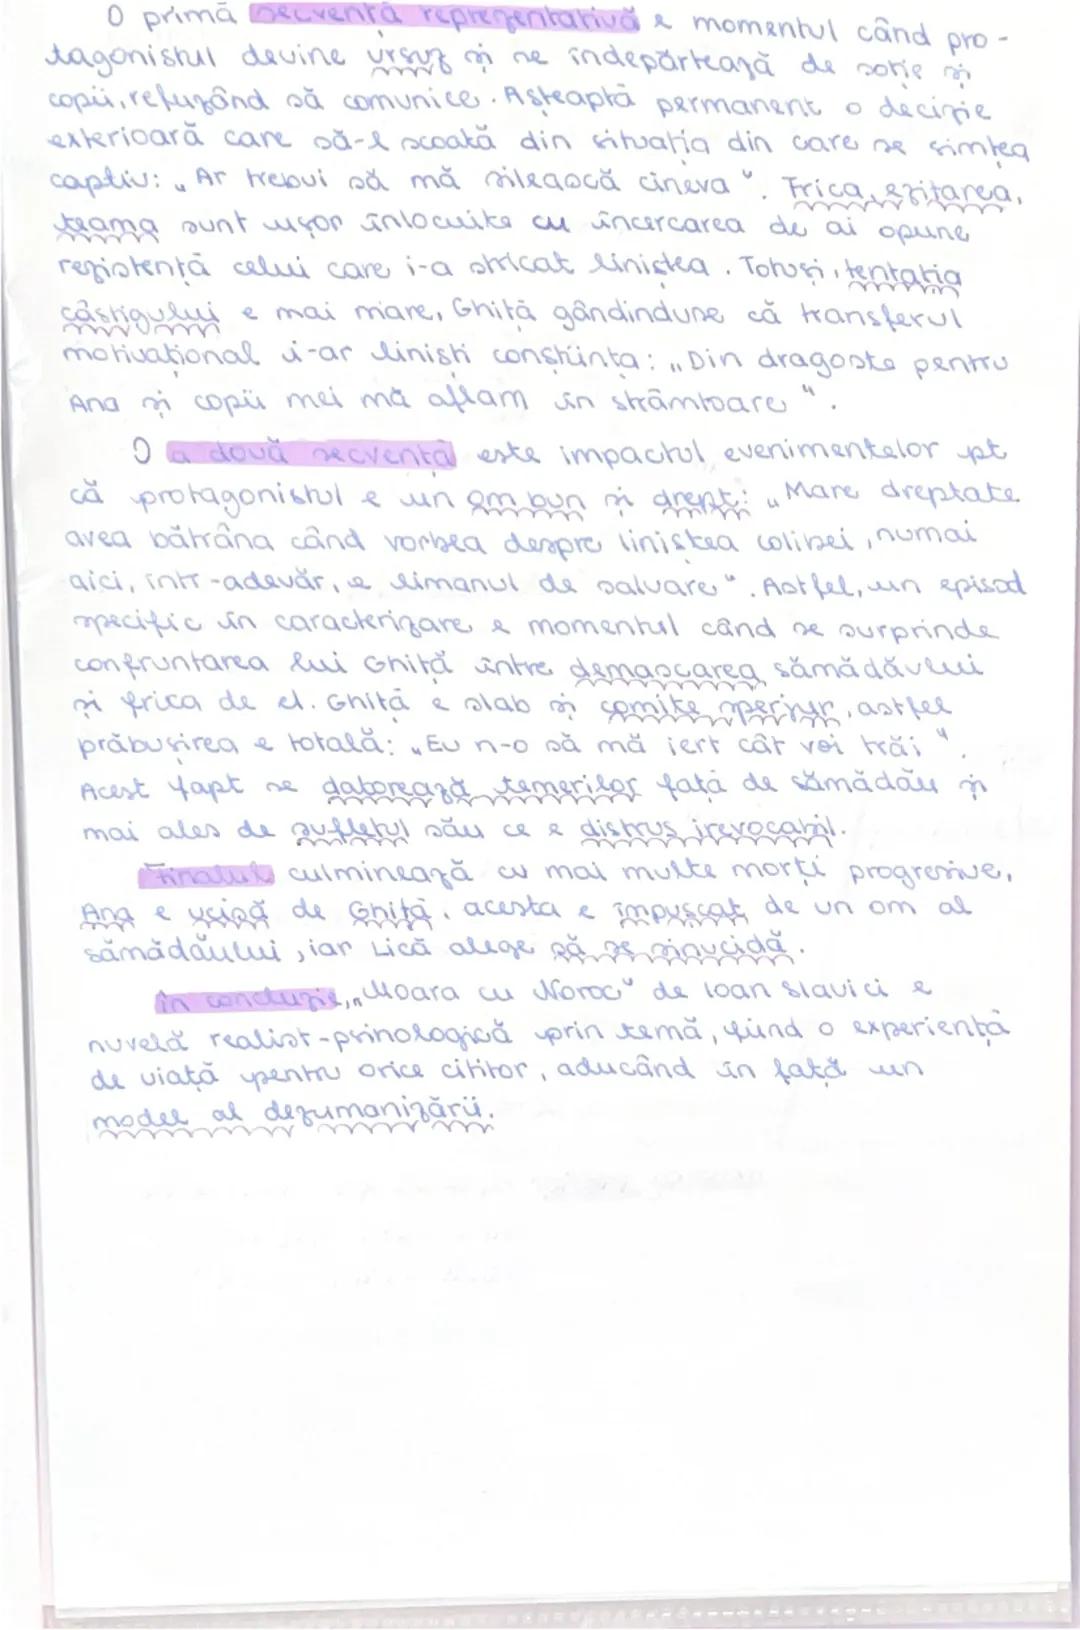 O primă secvență reprezentativă e momentul când pro-
tagonistul devine ursuz și se îndepărtează de soție și
copii, refuzând să comunice. Așteaptă permanent o decizie
exterioară care să-l scoată din situația din care se simțea
captiv: „Ar trebui să mă silească cineva". Frica, ezitarea,
teama sunt ușor înlocuite cu încercarea de ai opune
rezistență celui care i-a stricat liniștea. Totuși, tentația
câștigului e mai mare, Ghiță gândinduse că transferul
motivațional i-ar liniști conștiința: „Din dragoste pentru
Ana și copii mei mă aflam în strâmtoare".
O a două secvență este impactul evenimentelor pt
că protagonistul e un om bun și drept: „Mare dreptate
avea bătrâna când vorbea despre liniștea colibei, numai
aici, într-adevăr, e limanul de salvare". Astfel, un episod
specific în caracterizare e momentul când se surprinde
confruntarea lui Ghiță între demascarea sămădăului
și frica de el. Ghiță e slab și comite sperjur, astfel
prăbușirea e totală: „Eu n-o să mă iert cât voi trăi".
Acest fapt se datorează temerilor față de sămădău și
mai ales de sufletul său ce e distrus irevocabil.
Finalul culminează cu mai multe morți progresive,
Ana e ucisă de Ghiță, acesta e împușcat de un om al
sămădăului, iar Lică alege să se sinucidă.
În concluzie, „Moara cu Noroc" de Ioan Slavici e
nuvelă realist-psihologică prin temă, fiind o experiență
de viață pentru orice cititor, aducând în față un
model al dezumanizării.